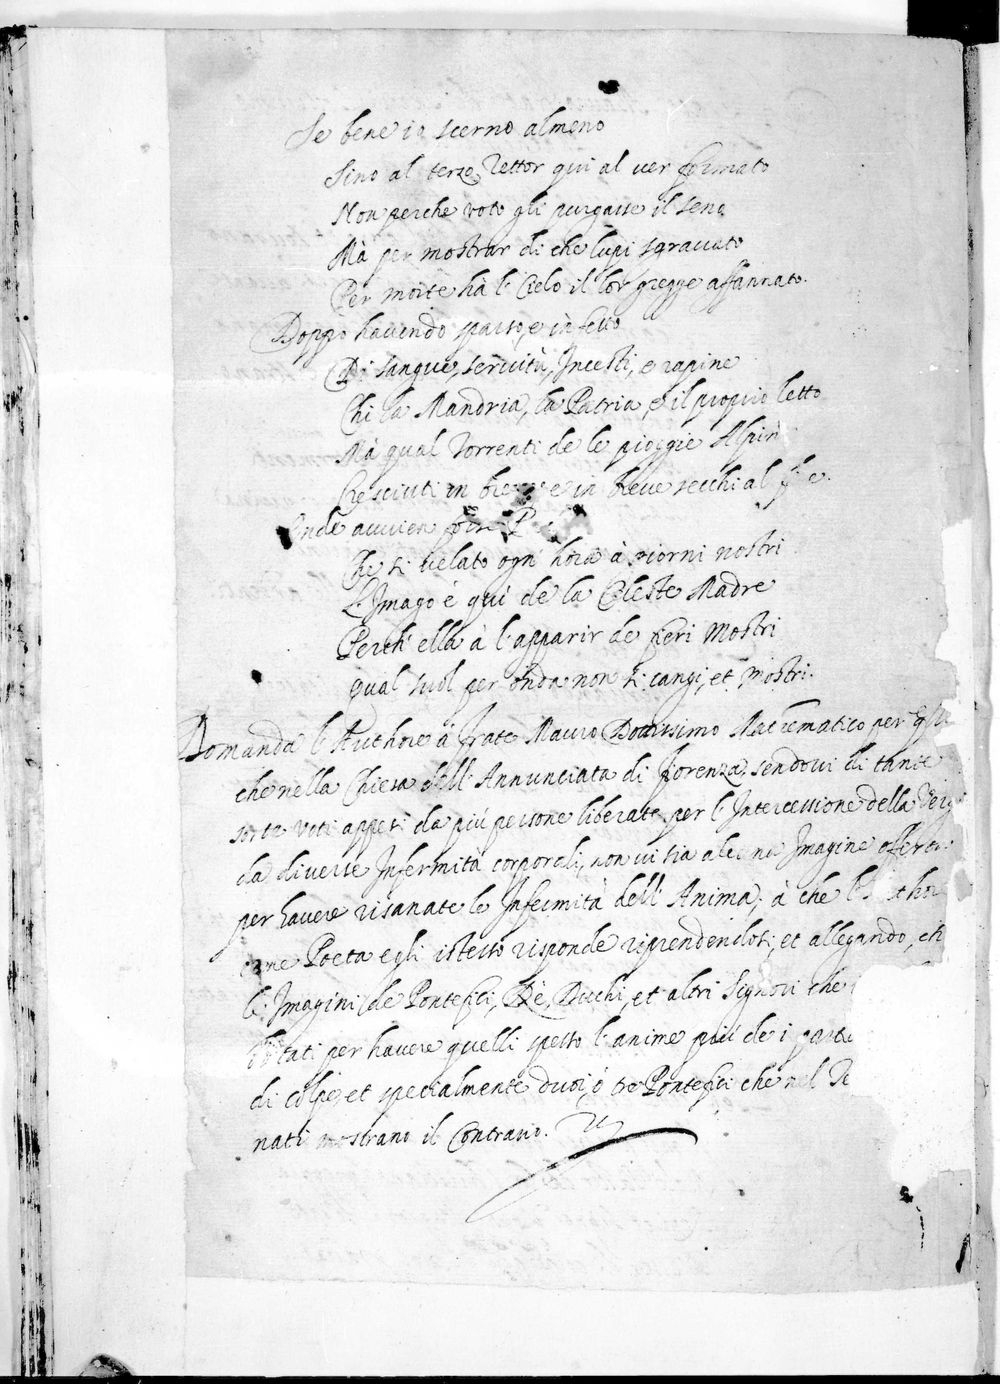 Se bene io scerno almeno
Sino al terzo Rettor quì al ver formato
Non perche voto gli purgasse il seno
Mà per mostrar di che lupi sgravato
Per morte hà l'Cielo il lor gregge affannato.
Doppo havendo sparso, e infetto
Di sangue, servitù, Incesti, e rapine
Chi la Mandria, la Patria, e il proprio letto
Mà qual Torrenti de le pioggie Alpin
Cresciuti in breve e in breve secchi al
Onde avvien
Che si velato ogn' hora à giorni nostri
L'Imago è quì de la Celeste Madre
Perch' ella à l'apparir de fieri Mostri
qual suol per onda non si cangi, et mostri.
Domanda l'Authore à frate Mauro Dottissimo Matematico per
che nella Chiesa dell' Annunciata di fiorenza, sendovi di tante
sorte voti appesi da più persone liberate per l'Intercessione della
da diverse Infermità corporali, non vi sia alcuna Imagine offerta
per havere risanate le Infermità dell' Anima; à che l'
come Poeta egli istesso risponde riprendendosi, et allegando, ch
l'Imagini de Pontefici, Rè, Duchi, et altri Signori che
botati per havere quelli spesso l'anime più de i
di colpe, et specialmente duoi, ò tre Pontefici che nel
nati mostrano il Contrario.